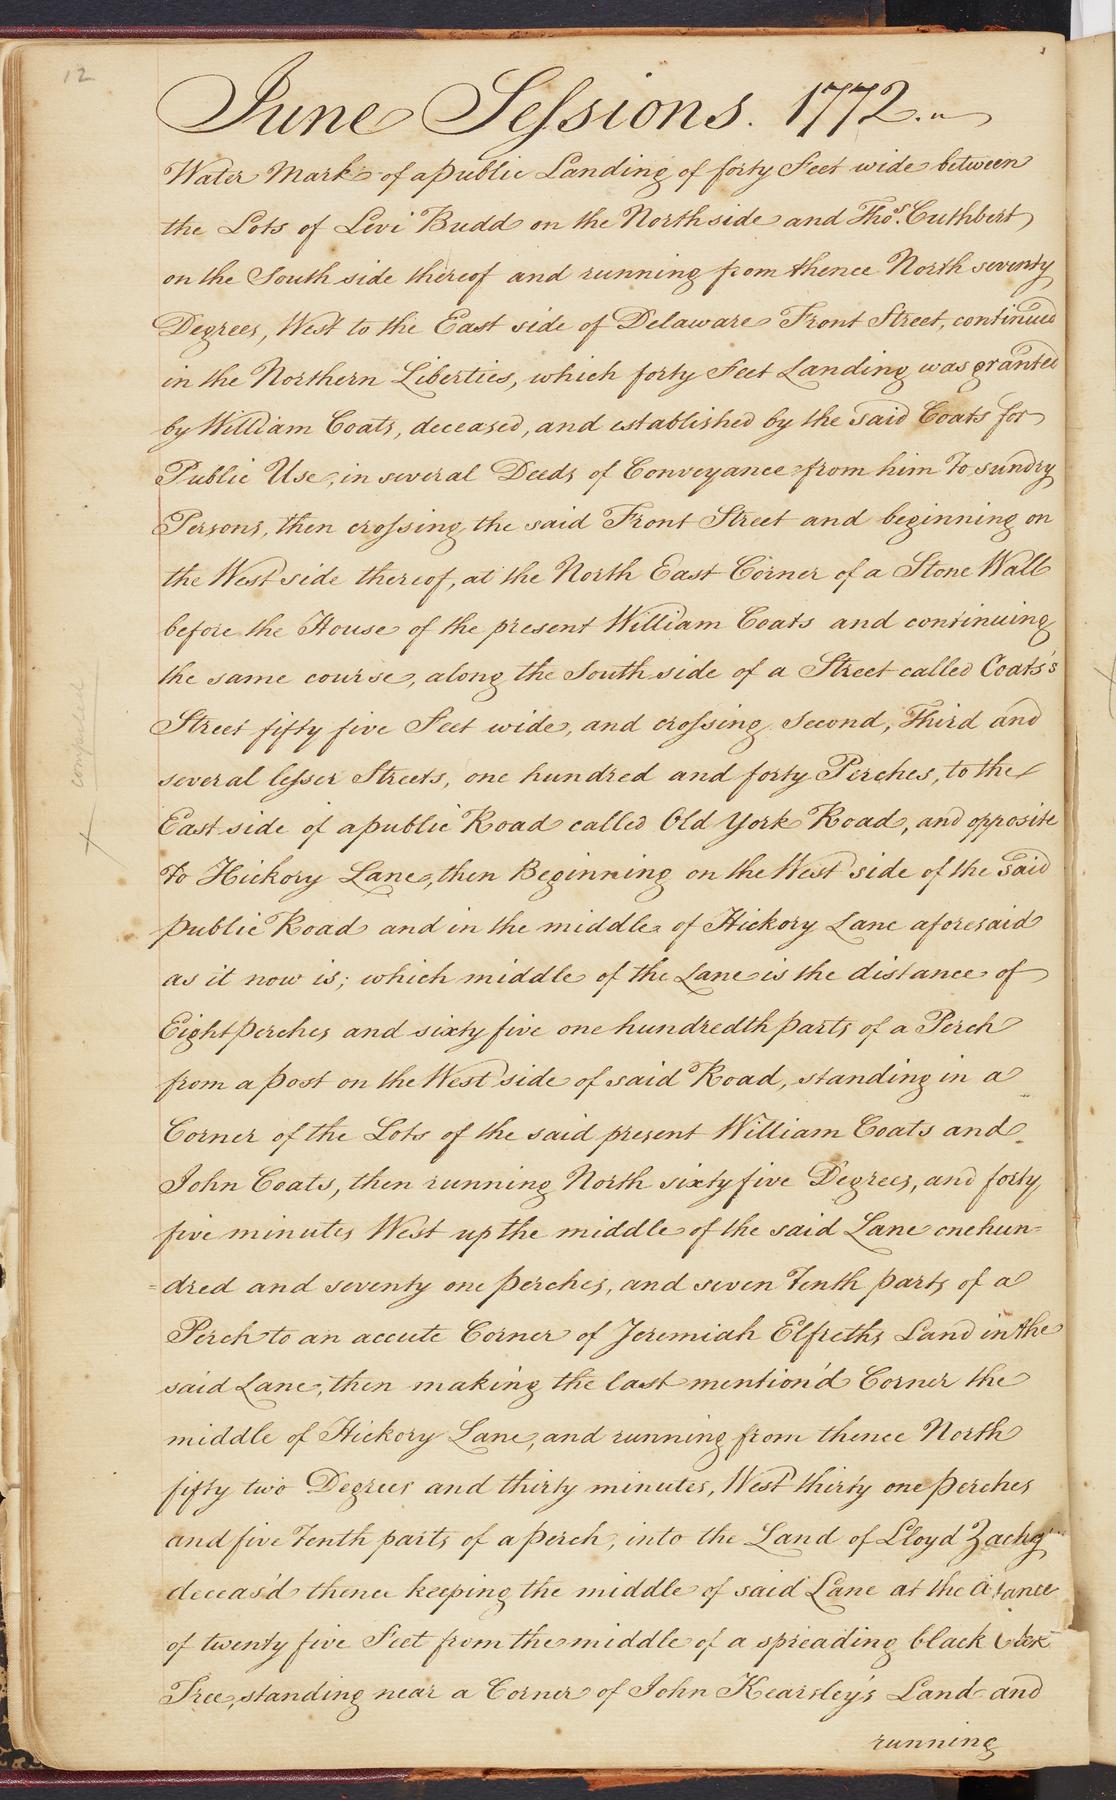 12
June Sessions. 1772.
Water Mark of a public Landing of forty Feet wide between
the Lots of Levi Budd on the North side and Thos. Cuthbert
on the South side thereof and running from thence North seventy
Degrees, West to the East side of Delaware Front Street, continued
in the Northern Liberties, which forty Feet Landing was granted
by William Coats, deceased, and established by the said Coats for
Public Use, in several Deeds of Conveyance from him To sundry
Persons, then crossing the said Front Street and beginning on
the West side thereof, at the North East Corner of a Stone Wall
before the House of the present William Coats and continuing
the same course, along the South side of a Street called Coats's
Street fifty five Feet wide, and crossing Second, Third and
several lesser Streets, one hundred and forty Perches, to the
East side of a public Road called Old York Road, and opposite
To Hickory Lane, then Beginning on the West side of the said
public Road and in the middle of Hickory Lane aforesaid
as it now is; which middle of the Lane is the distance of
Eight perches and sixty five one hundredth parts of a Perch
from a post on the West side of said Road, standing in a
Corner of the Lots of the said present William Coats and
John Coats, then running North sixty five Degrees, and forty
five minutes West up the middle of the said Lane one hun=
=dred and seventy one perches, and seven Tenth parts of a
Perch to an accute Corner of Jeremiah Elfreths Land in the
said Lane, then making the last mention'd Corner the
middle of Hickory Lane, and running from thence North
fifty two Degrees and thirty minutes, West thirty one perches
and five Tenth parts of a perch, into the Land of Lloyd Zachy
deceas'd thence keeping the middle of said Lane at the
of twenty five Feet from the middle of a spreading black
Tree, standing near a Corner of John Kearsley's Land and
running
compared